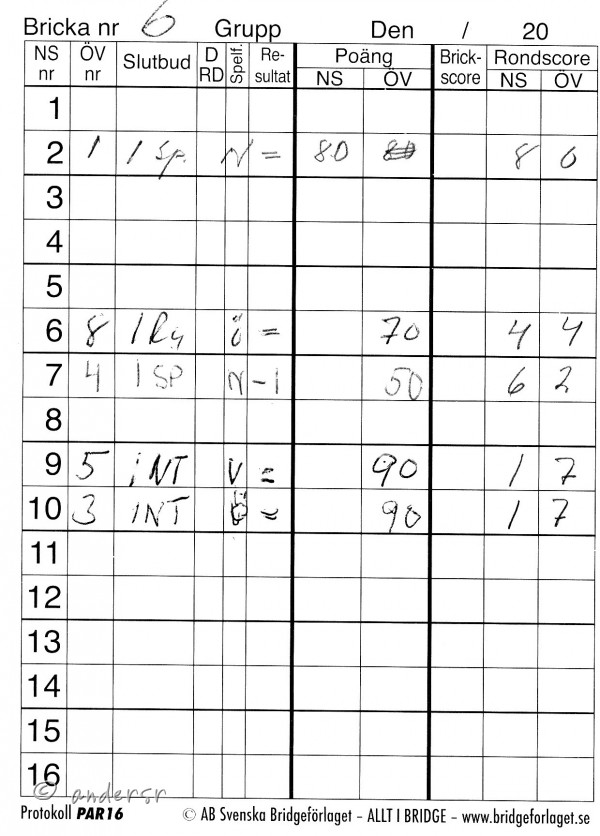 Bricka nr 6 Grupp Den / 20
NS nr ÖV nr Slutbud D RD Spelf. Resultat Poäng NS ÖV Brick-score Rondscore NS ÖV
1
2 1 1 Sp. N = 80 80 8 0
3
4
5
6 8 1 Ru ö = 70 4 4
7 4 1 SP N -1 50 6 2
8
9 5 1NT V = 90 1 7
10 3 1NT Ö = 90 1 7
11
12
13
14
15
16
© andersr
Protokoll PAR16 © AB Svenska Bridgeförlaget – ALLT I BRIDGE – www.bridgeforlaget.se